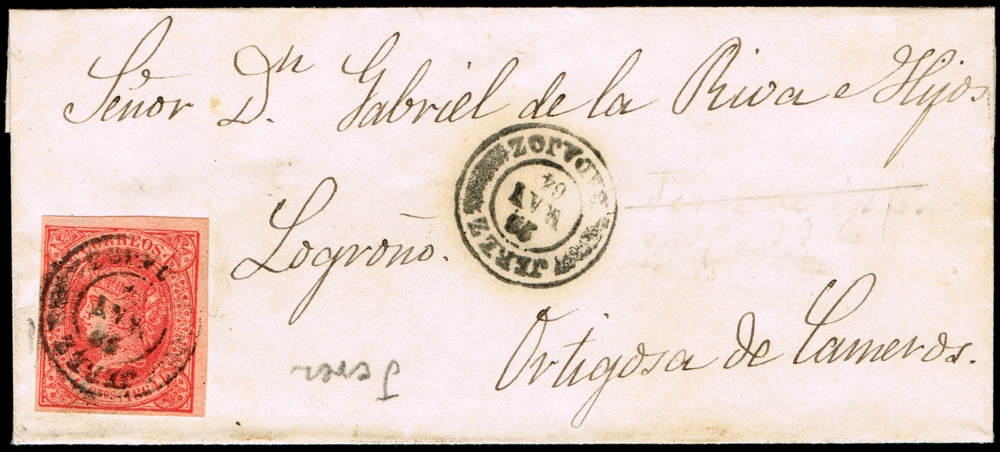 Señor Dn Gabriel de la Riva e Hijos
Logroño.
Ortigosa de Cameros.
JEREZ
BADAJOZ
MAY
64
CORREOS
Jerez